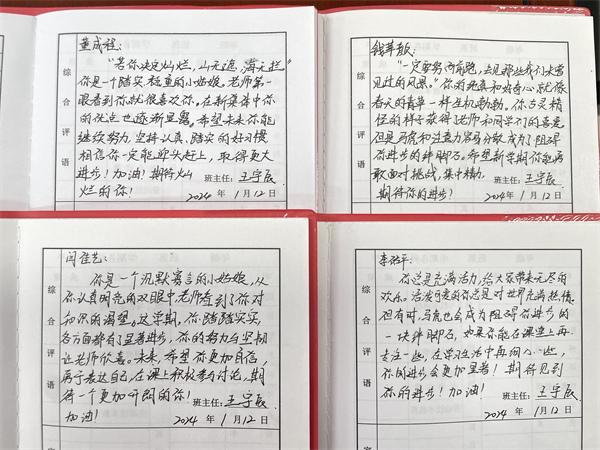 综合评语
董成程：
“若你决定灿烂，山无遮，海无拦”
你是一个踏实稳重的小姑娘。老师第一
眼看到你就很喜欢你。在新集体中你
的优点也逐渐显露，希望未来你能
继续努力，坚持认真、踏实的好习惯
相信你一定能迎头赶上，取得更大
进步！加油！期待灿
烂的你！
班主任：王宇辰
2024 年 1月12日
综合评语
钱
“一定要努力向前跑，去见那些我们未曾
见过的风景。”你的天真和好奇心就像
春天的青草一样生机勃勃。你古灵精
怪的样子获得了老师和同学们的喜爱
但是马虎和注意力容易分散成为了阻碍
你进步的绊脚石。希望新学期你能勇
敢面对挑战，集中精力，
期待你的进步！
班主任：王宇辰
2024 年 1月12日
综合评语
闫佳艺：
你是一个沉默寡言的小姑娘，从
你认真明亮的双眼中，老师看到了你对
知识的渴望。这学期，你踏踏实实，
各方面都有了显著进步，你的努力与坚韧
让老师欣喜。未来，希望你更加自信，
勇于表达自己，在课上积极参与讨论，期
待一个更加开朗的你！
加油！
班主任：王宇辰
2024 年 1月12日
综合评语
李祐平：
你总是充满活力，给大家带来无尽的
欢乐。活泼可爱的你总是对世界充满热情
但有时，马虎也会成为阻碍你进步的
一块绊脚石，如果你能在课堂上再
专注一些，在学习生活中再细心一些，
你的进步会更加显著！期待见到
你的进步！加油！
班主任：王宇辰
2024 年 1月12日